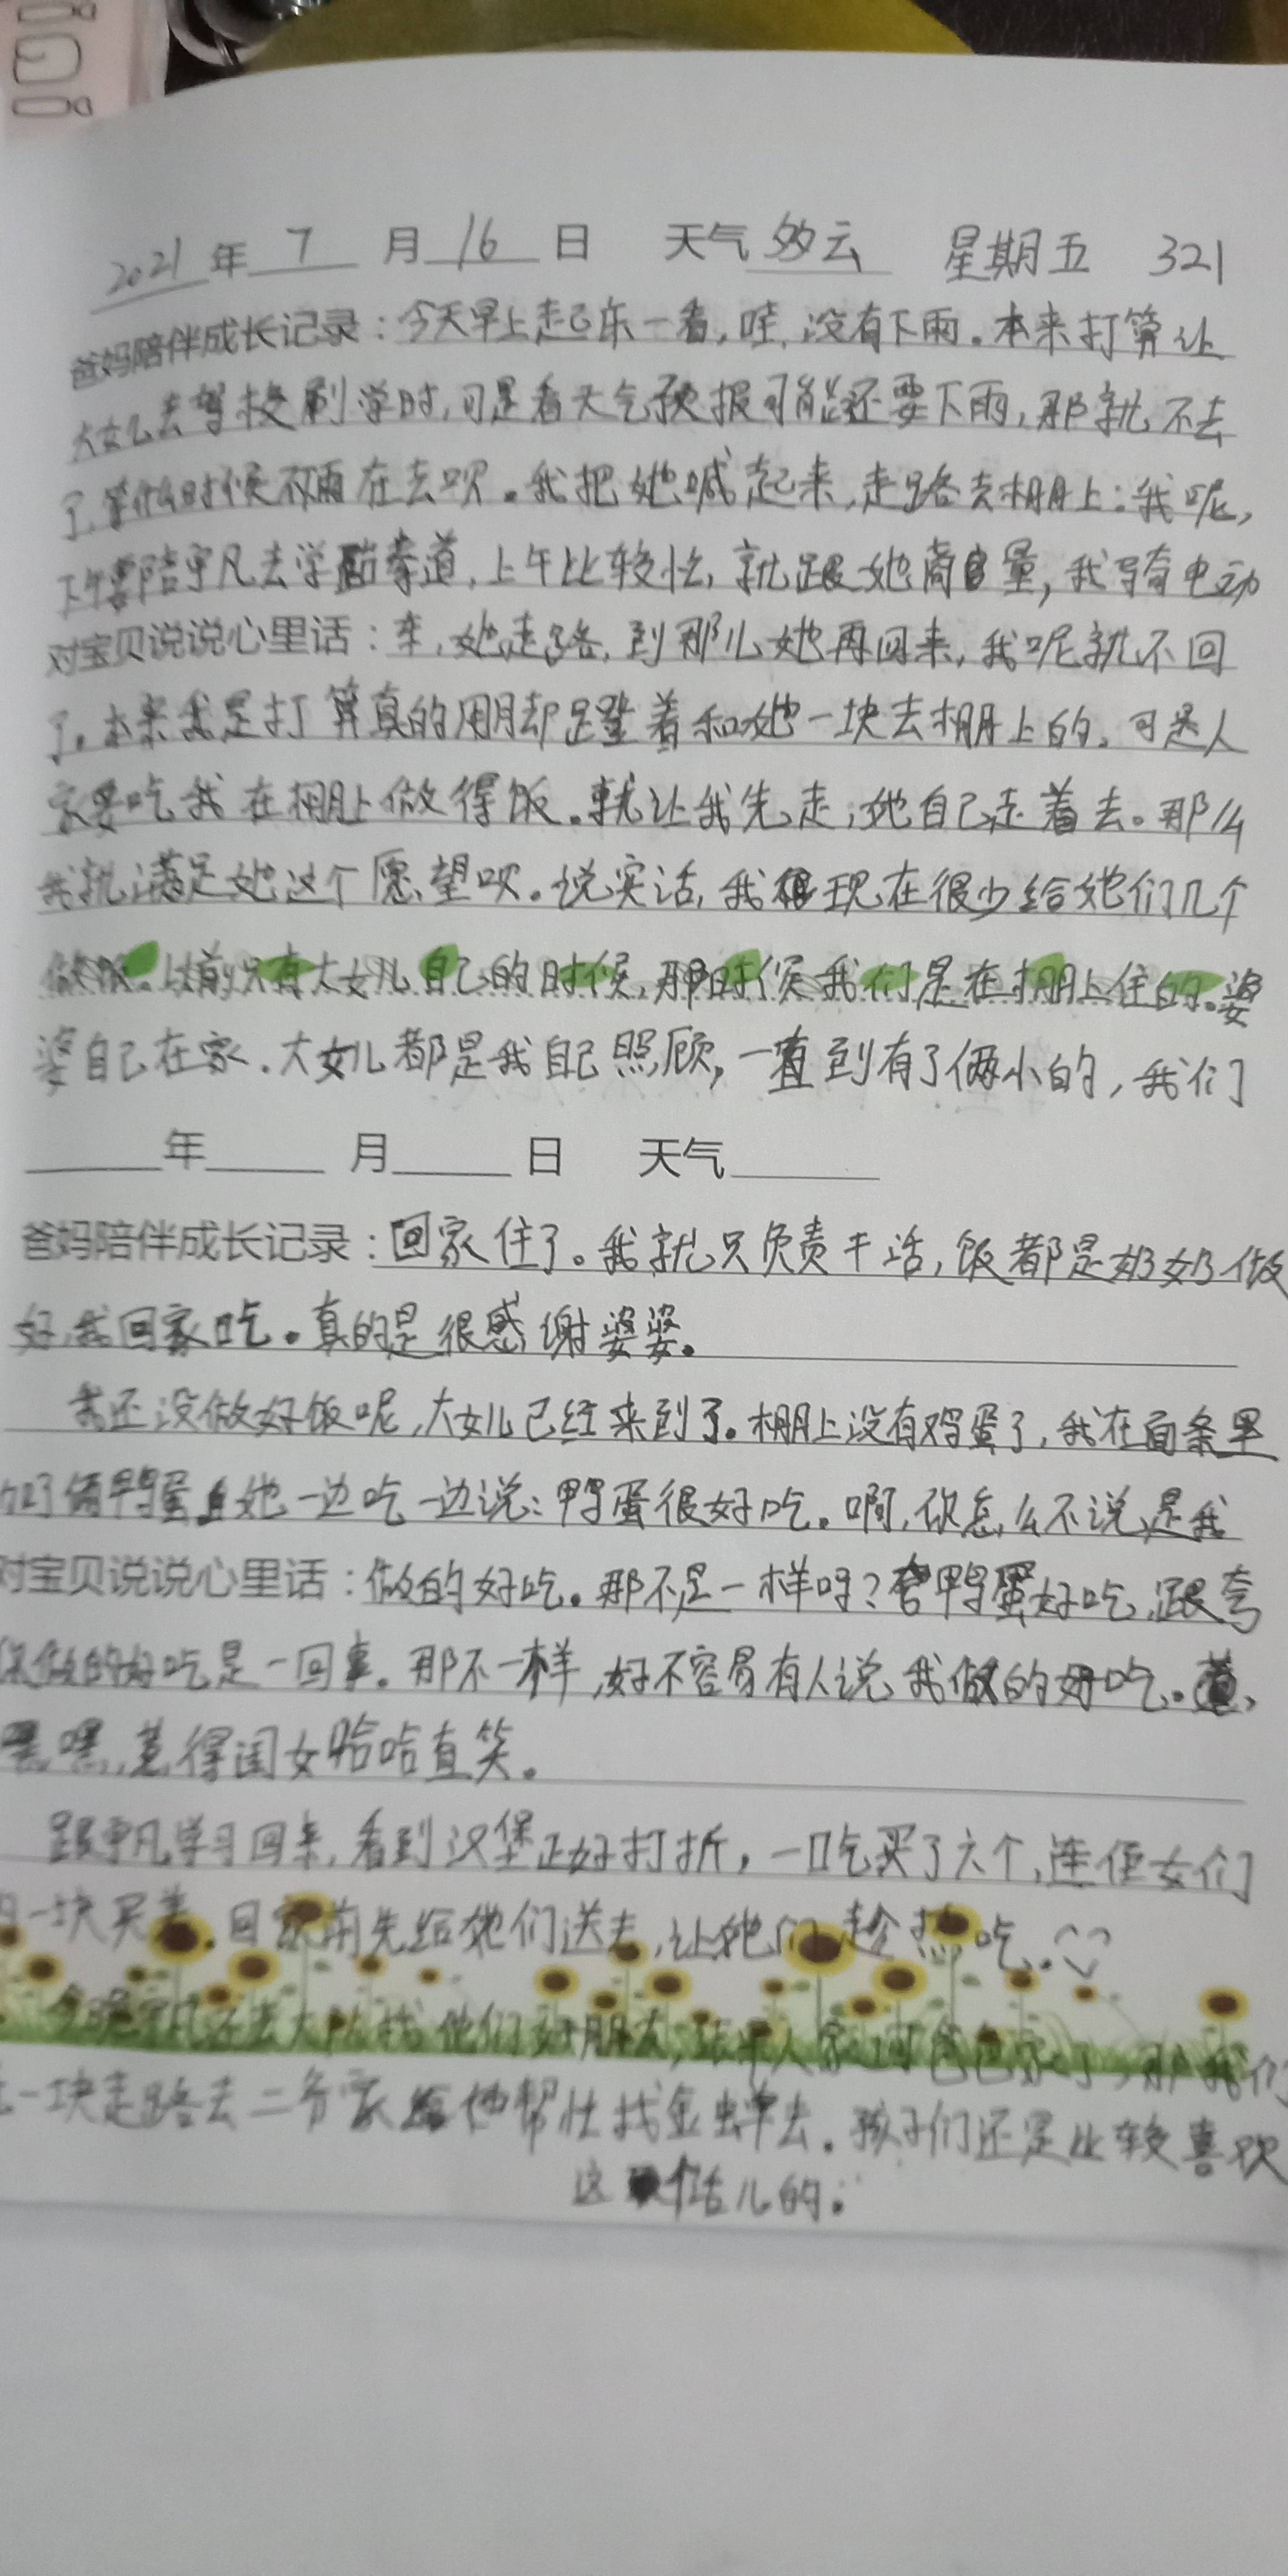 2021年 7 月 16 日 天气 多云 星期五 321
爸妈陪伴成长记录：今天早上起床一看，哇，没有下雨。本来打算让
大女儿去驾校刷学时，可是看天气预报可能还要下雨，那就不去
了，等什么时候不下雨在去呗。我把她喊起来，走路去棚上：我呢，
下午要陪宇凡去学跆拳道，上午比较忙，就跟她商量，我骑电动
对宝贝说说心里话：车，她走路，到那儿她再回来，我呢就不回
了。本来我是打算真的用脚蹬着和她一块去棚上的。可是人
家要吃我在棚上做得饭。就让我先走，她自己走着去。那么
我就满足她这个愿望呗。说实话，我现在很少给她们几个
做饭。以前只有大女儿自己的时候，那时候我们是在棚上住的。婆
婆自己在家．大女儿都是我自己照顾，一直到有了俩小的，我们
年 月 日 天气
爸妈陪伴成长记录：回家住了。我就只负责干活，饭都是奶奶做
好，我回家吃。真的是很感谢婆婆。
我还没做好饭呢，大女儿已经来到了。棚上没有鸡蛋了，我在面条里
俩鸭蛋，她一边吃一边说：鸭蛋很好吃。啊，你怎么不说是我
对宝贝说说心里话：做的好吃。那不是一样呀？夸鸭蛋好吃，跟夸
你做的好吃是一回事。那不一样，好不容易有人说我做的好吃。
嘿嘿，惹得闺女哈哈直笑。
跟宇凡学习回来，看到汉堡正好打折，一口气买了六个，连侄女们
一块买着，回家前先给她们送去，让她们趁热吃。
今晚宇凡还去大队找他们好朋友，结果人家回爸爸家了，那我们
一块走路去二爷家给他帮忙找金蝉去．孩子们还是比较喜欢
这个活儿的。